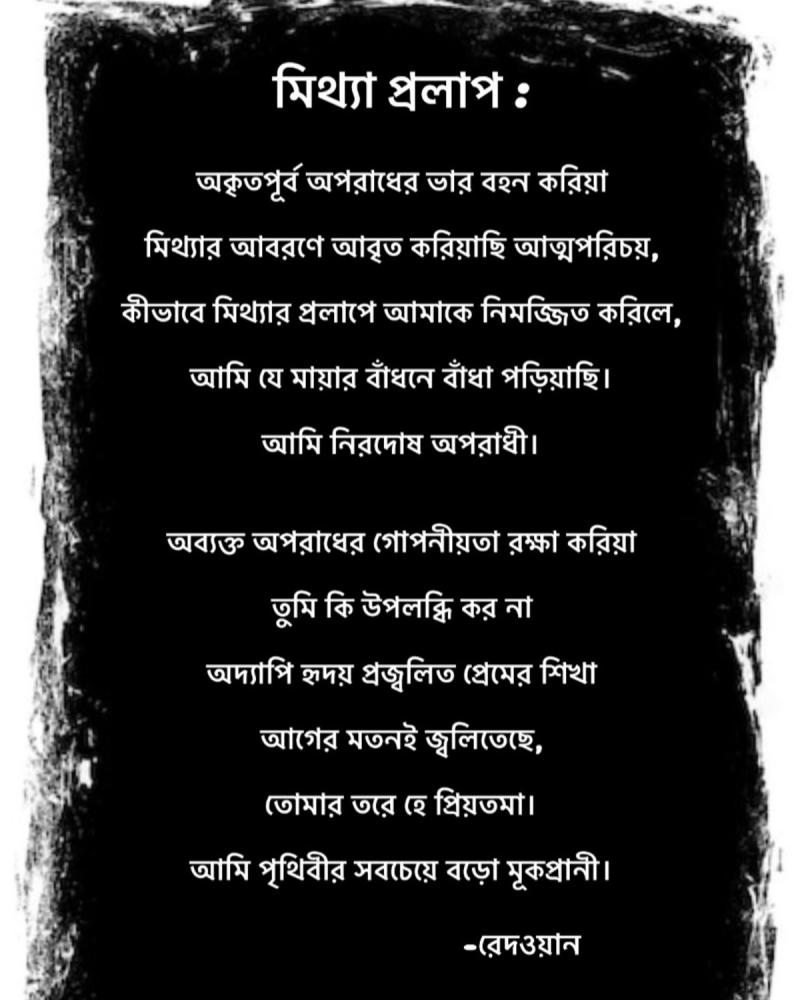 মিথ্যা প্রলাপ :
অকৃতপূর্ব অপরাধের ভার বহন করিয়া
মিথ্যার আবরণে আবৃত করিয়াছি আত্মপরিচয়,
কীভাবে মিথ্যার প্রলাপে আমাকে নিমজ্জিত করিলে,
আমি যে মায়ার বাঁধনে বাঁধা পড়িয়াছি।
আমি নিরদোষ অপরাধী।
অব্যক্ত অপরাধের গোপনীয়তা রক্ষা করিয়া
তুমি কি উপলব্ধি কর না
অদ্যাপি হৃদয় প্রজ্বলিত প্রেমের শিখা
আগের মতনই জ্বলিতেছে,
তোমার তরে হে প্রিয়তমা।
আমি পৃথিবীর সবচেয়ে বড়ো মূকপ্রানী।
-রেদওয়ান